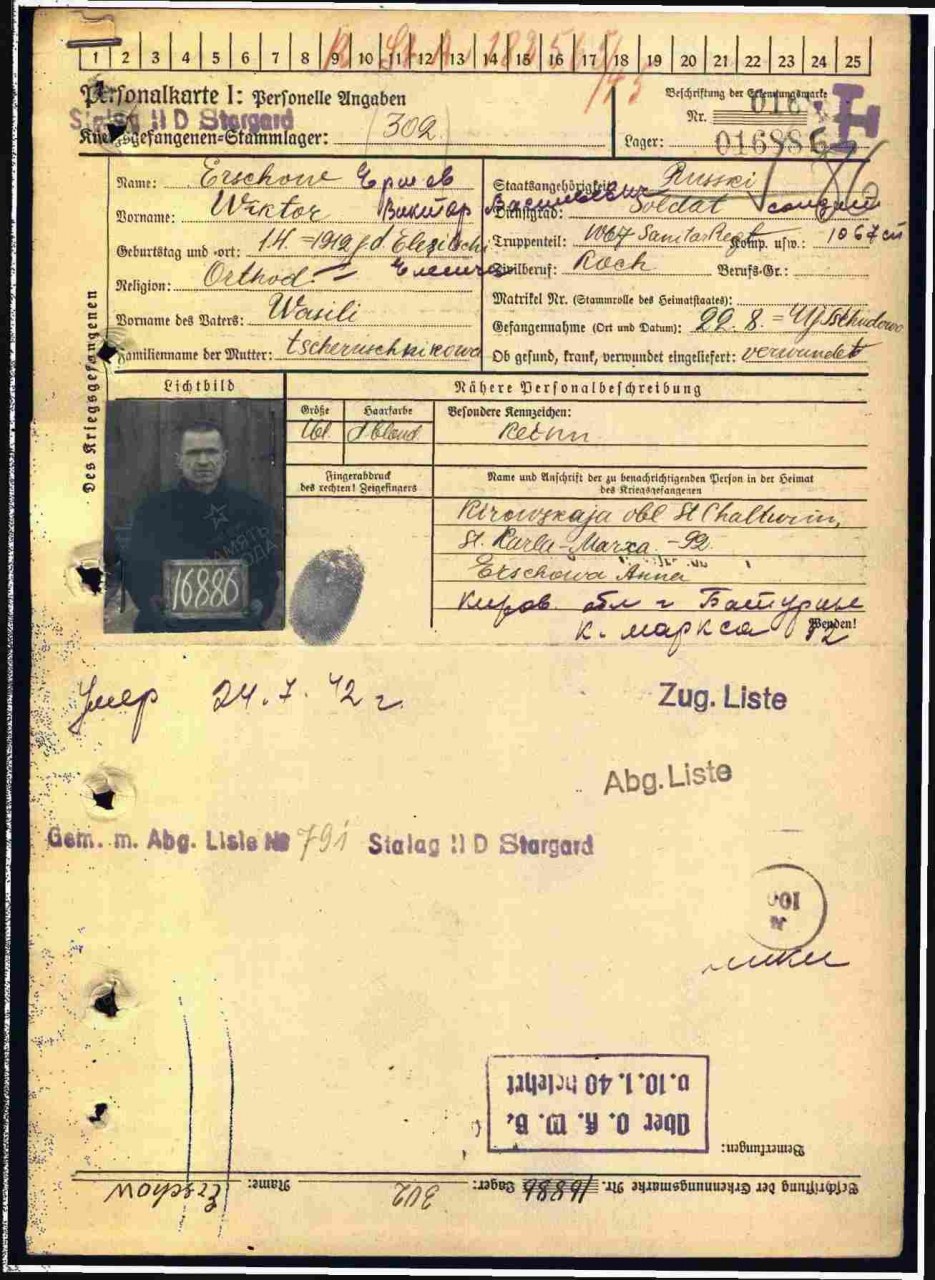 1 2 3 4 5 6 7 8 9 10 11 12 13 14 15 16 17 18 19 20 21 22 23 24 25
Personalkarte I: Personelle Angaben
Stalag II D Stargard
Kriegsgefangenen-Stammlager: 302
Beschriftung der Erkennungsmarke
Nr. 016
Lager: 016886
Des Kriegsgefangenen
Name: Erschow Ершов
Vorname: Wiktor Виктор Васильевич
Geburtstag und -ort: 1.4.1912
Religion: Orthod.
Vorname des Vaters: Wasili
Familienname der Mutter: Tscheruschnikowa
Staatsangehörigkeit: Russki
Dienstgrad: Soldat солдат
Truppenteil: 1067 Sanitar Regt Komp. usw.: 1067 сп
Zivilberuf: Koch Berufs-Gr.:
Matrikel Nr. (Stammrolle des Heimatstaates):
Gefangennahme (Ort und Datum): 22.8. Tschudowo
Ob gesund, krank, verwundet eingeliefert: verwundet
Lichtbild
16886
ПАМЯТЬ
НАРОДА
Nähere Personalbeschreibung
Größe Haarfarbe Besondere Kennzeichen:
d.blond
Fingerabdruck
des rechten! Zeigefingers
Name und Anschrift der zu benachrichtigenden Person in der Heimat
des Kriegsgefangenen
Kirowskaja obl St Chalturin,
St. Karla-Marxa - 92
Erschowa Anna
Киров. обл г
К. маркса 92
Wenden!
Умер 24.7.42 г
Zug. Liste
Abg. Liste
Gem. m. Abg. Liste № 791 Stalag II D Stargard
Über O. K. W. B.
v. 10.1.40 belehrt
Bemerkungen:
Beschriftung der Erkennungsmarke Nr. 16886 Lager: 302 Name: Erschow